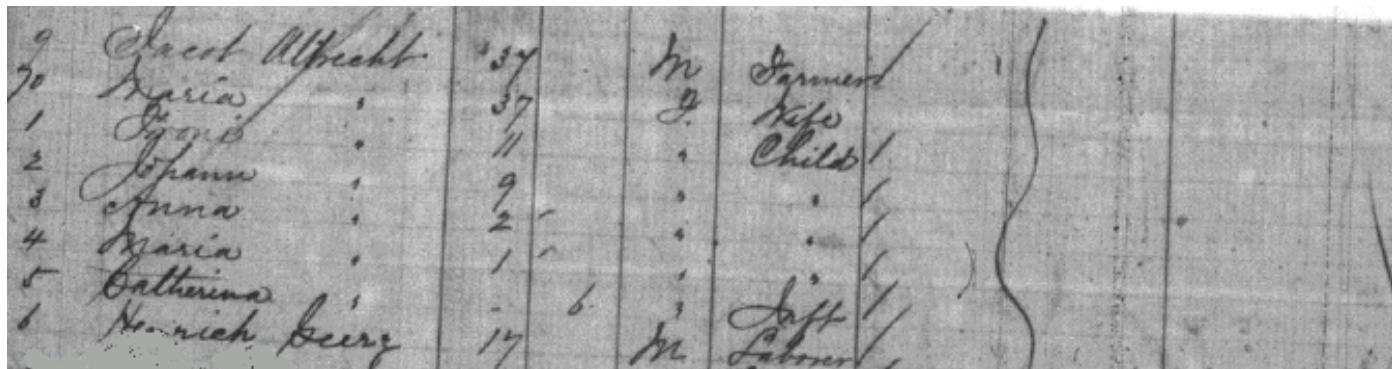 9 Jacob Albrecht 37 M Farmer
70 Maria " 37 F. Wife
1 " 11 " Child
2 Johann " 9 " "
3 Anna " 2 " "
4 Maria " 1 " "
5 Catherina " - 6 " Inft
6 Heinrich 17 M Laborer